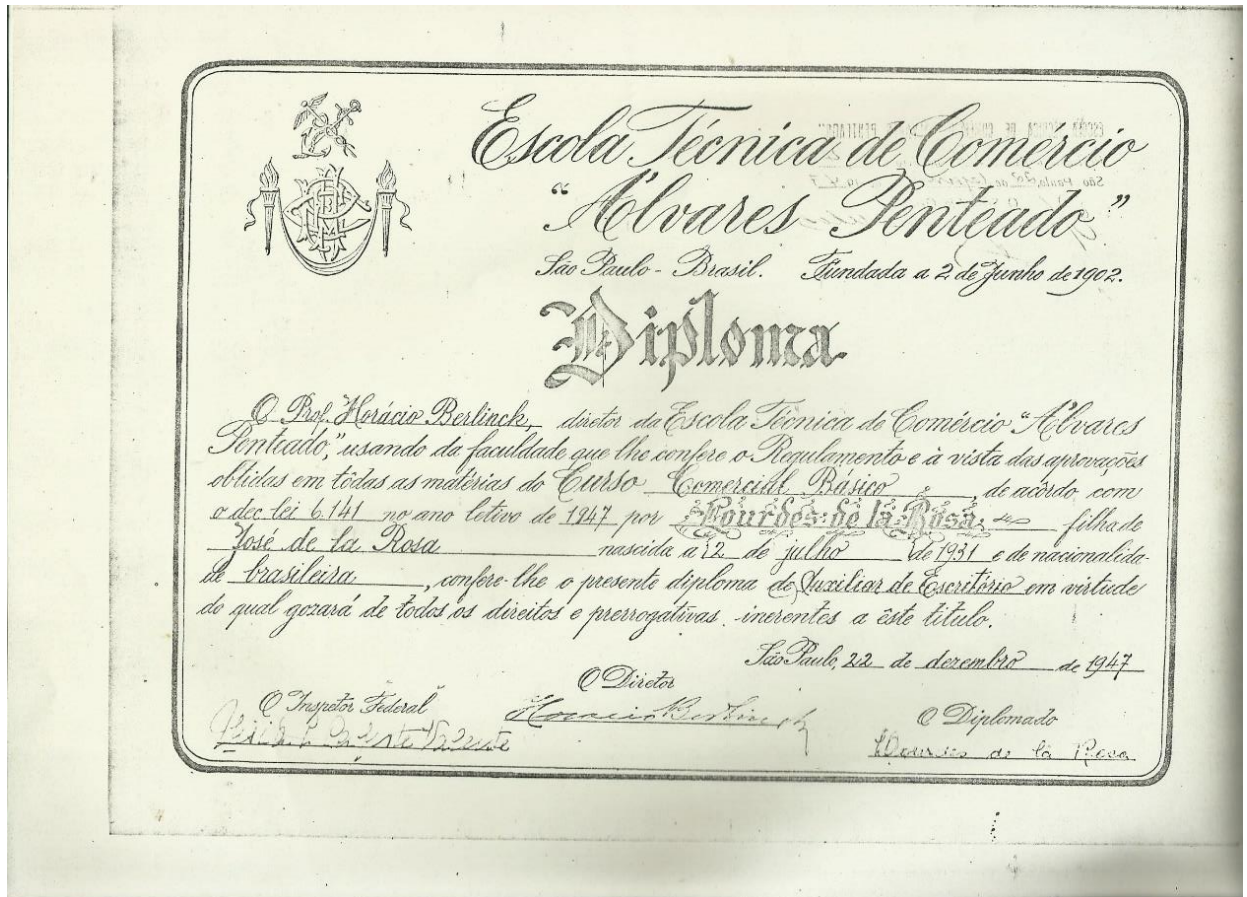 Escola Técnica de Comércio
"Álvares Penteado"
São Paulo - Brasil. Fundada a 2 de Junho de 1902.
Diploma
O Prof. Horácio Berlinck, diretor da Escola Técnica de Comércio "Álvares
Penteado," usando da faculdade que lhe confere o Regulamento e à vista das aprovações
obtidas em tôdas as matérias do Curso Comercial Básico, de acôrdo com
o dec. lei 6.141 no ano letivo de 1947 por Lourdes de la Rosa filha de
José de la Rosa nascida a 12 de julho de 1931 e de nacionalida-
de brasileira, confere-lhe o presente diploma de Auxiliar de Escritório em virtude
do qual gozará de todos os direitos e prerrogativas inerentes a êste título.
São Paulo, 22 de dezembro de 1947
O Diretor
O Inspetor Federal
Horacio Berlinck
O Diplomado
Lourdes de la Rosa